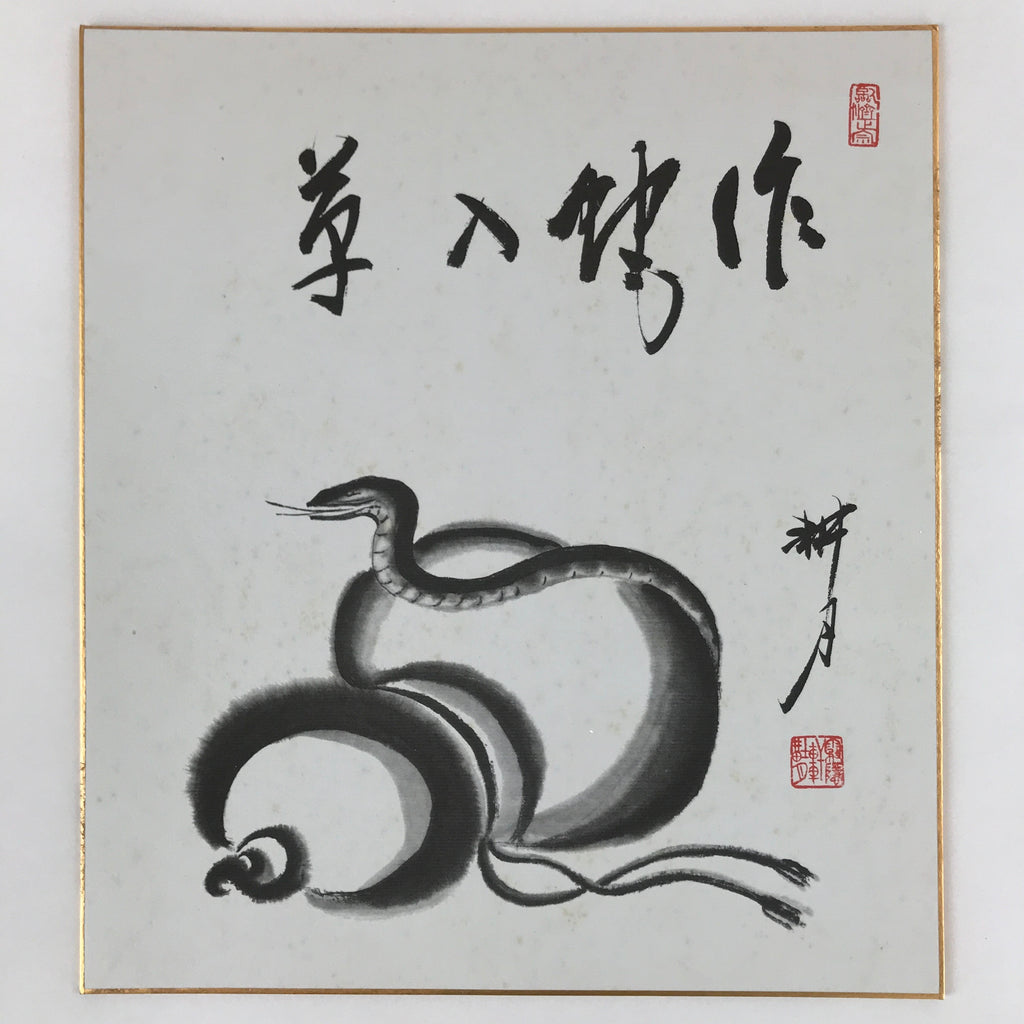 作蛇入草
耕月